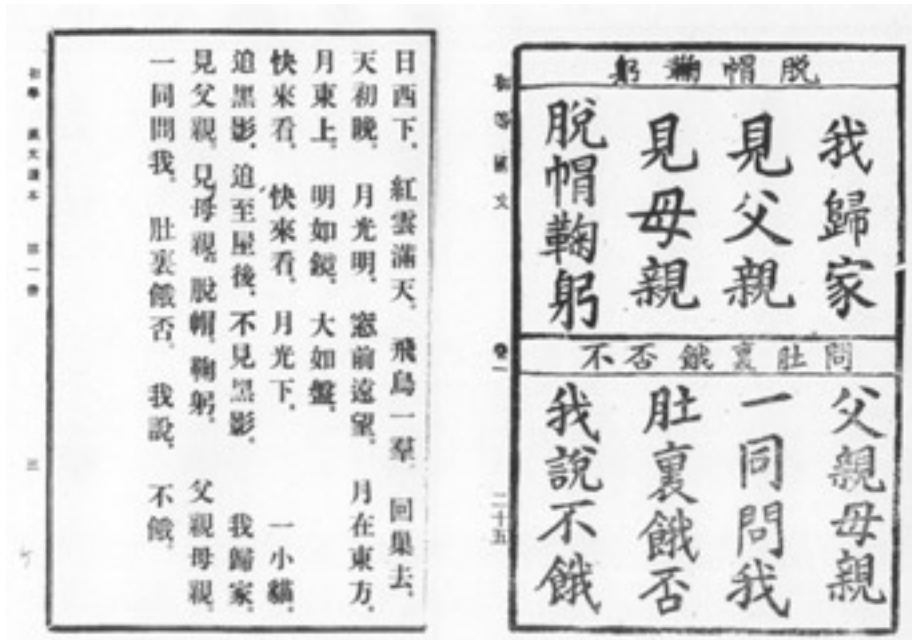 脫帽鞠躬
我歸家
見父親
見母親
脫帽鞠躬
問肚裏餓否不
父親母親
一同問我
肚裏餓否
我說不餓
初等國文
卷一
二十五
日西下、紅雲滿天、飛鳥一羣、回巢去、
天初晚、月光明、窓前遠望、月在東方、
月東上、明如鏡、大如盤、
快來看、快來看、月光下、一小貓、
追黑影、追至屋後、不見黑影、我歸家、
見父親、見母親、脫帽、鞠躬、父親母親、
一同問我、肚裏餓否、我說、不餓、
國文讀本
第一冊
三